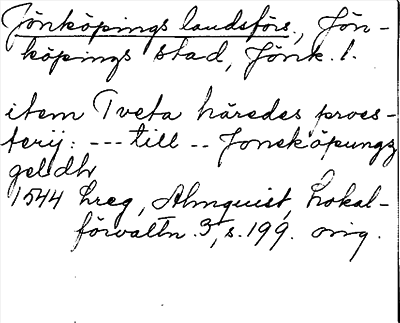 Jönköpings landsförs., Jön-
köpings stad, Jönk. l.
item Tveta häredes proes-
terij: --- till -- Jonsköpungz
geldh
1544 hreg, Almquist, Lokal-
förvaltn. 3, s. 199. orig.